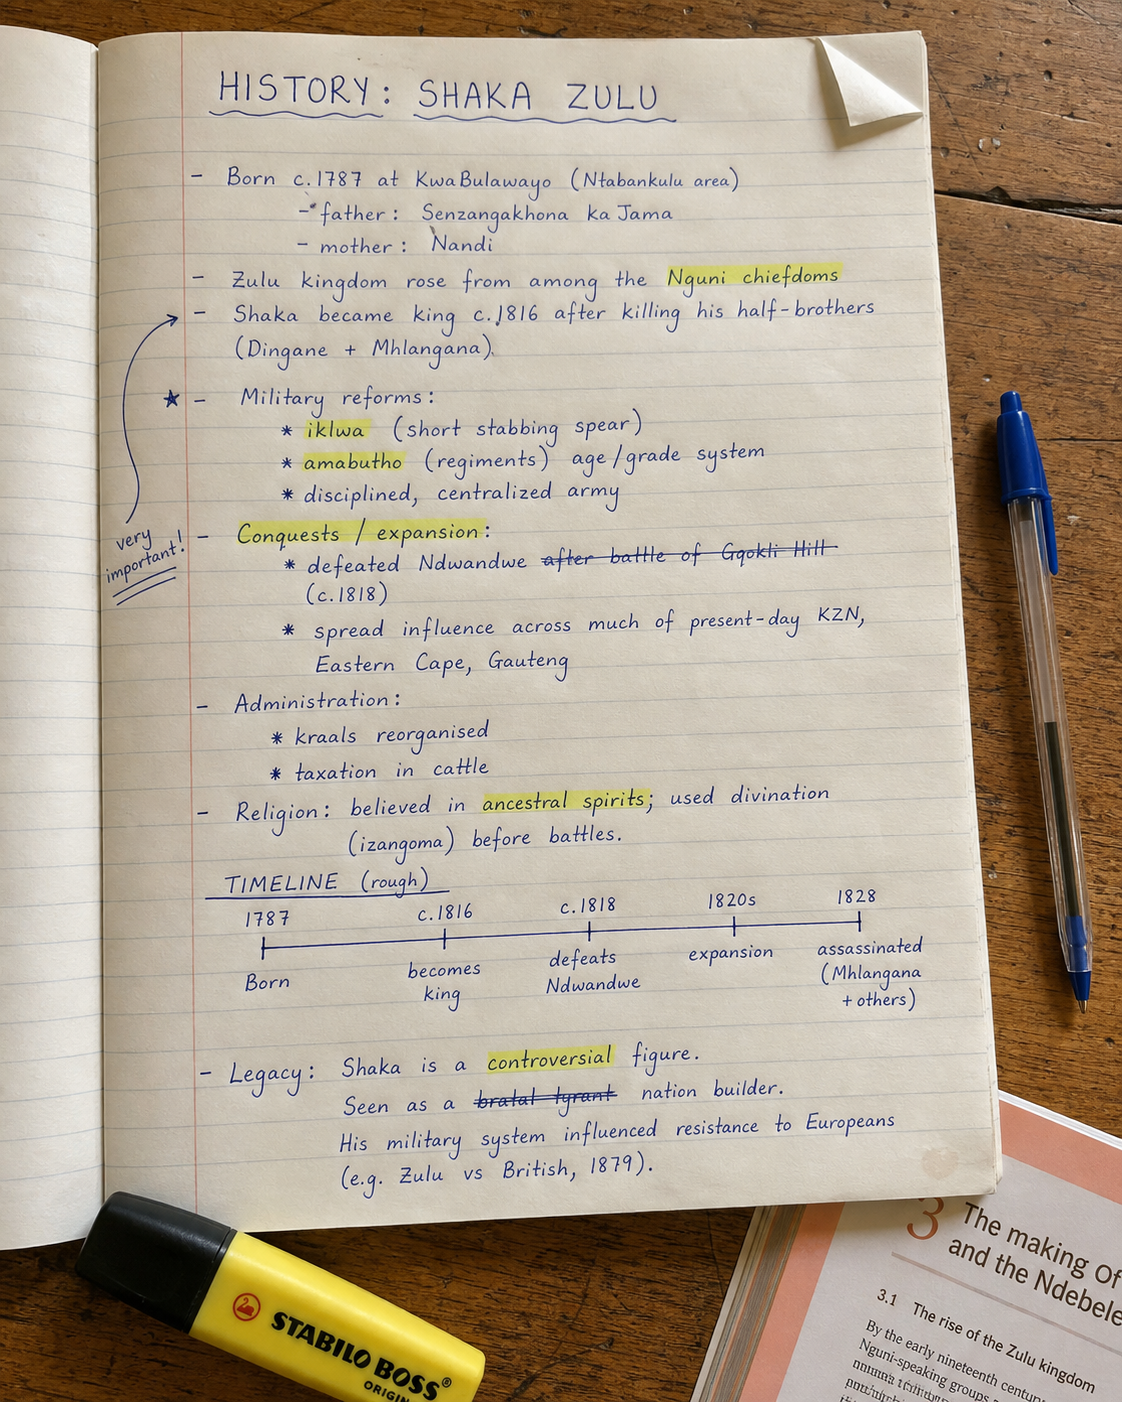 HISTORY: SHAKA ZULU
- Born c.1787 at KwaBulawayo (Ntabankulu area)
- father: Senzangakhona ka Jama
- mother: Nandi
- Zulu kingdom rose from among the Nguni chiefdoms
- Shaka became king c.1816 after killing his half-brothers
(Dingane + Mhlangana).
★ - Military reforms:
* iklwa (short stabbing spear)
* amabutho (regiments) age/grade system
* disciplined, centralized army
very
important!
- Conquests / expansion:
* defeated Ndwandwe after battle of Gqokli Hill
(c.1818)
* spread influence across much of present-day KZN,
Eastern Cape, Gauteng
- Administration:
* kraals reorganised
* taxation in cattle
- Religion: believed in ancestral spirits; used divination
(izangoma) before battles.
TIMELINE (rough)
1787 c.1816 c.1818 1820s 1828
Born becomes defeats expansion assassinated
king Ndwandwe (Mhlangana
+ others)
- Legacy: Shaka is a controversial figure.
Seen as a bratal tyrant nation builder.
His military system influenced resistance to Europeans
(e.g. Zulu vs British, 1879).
STABILO BOSS®
ORIGIN
3 The making Of
and the Ndebele
3.1 The rise of the Zulu kingdom
By the early nineteenth century
Nguni-speaking groups